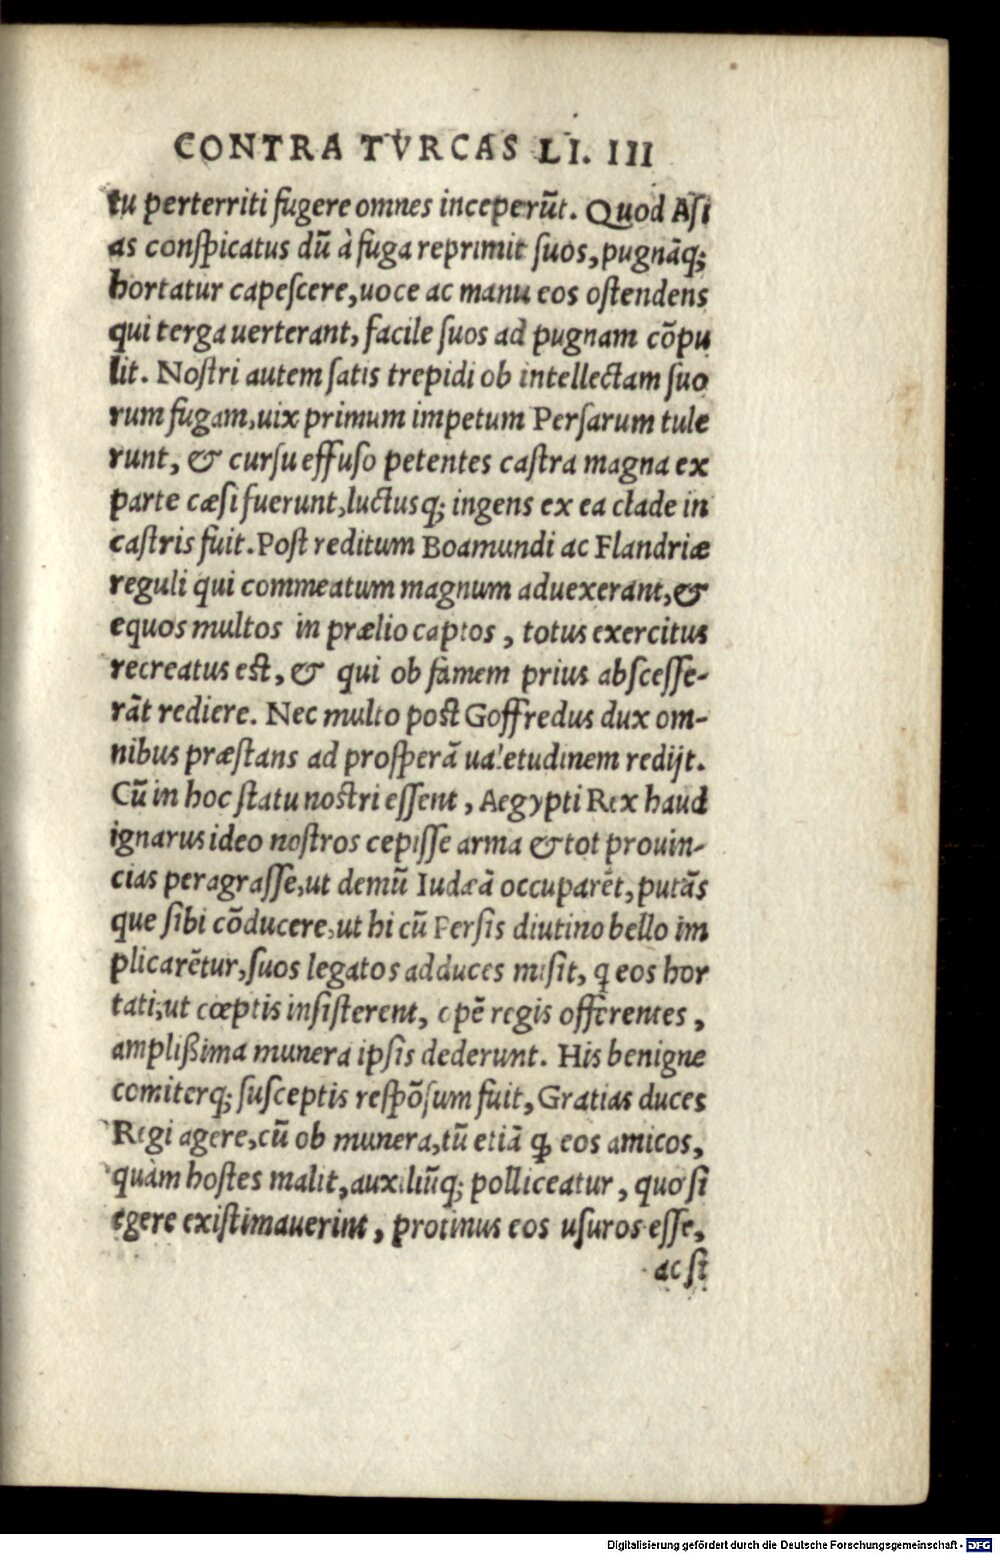 CONTRA TVRCAS LI. III
tu perterriti fugere omnes inceperūt. Quod Aſi
as conſpicatus dū à fuga reprimit ſuos, pugnāq;
hortatur capeſcere, uoce ac manu eos oſtendens
qui terga uerterant, facile ſuos ad pugnam cōpu
lit. Noſtri autem ſatis trepidi ob intellectam ſuo
rum fugam, uix primum impetum Perſarum tule
runt, & curſu effuſo petentes caſtra magna ex
parte cæſi fuerunt, luctusq; ingens ex ea clade in
caſtris fuit. Poſt reditum Boamundi ac Flandriæ
reguli qui commeatum magnum aduexerant, &
equos multos in prælio captos, totus exercitus
recreatus eſt, & qui ob famem prius abſceſſe-
rāt rediere. Nec multo poſt Goffredus dux om-
nibus præſtans ad proſperā ualetudinem redijt.
Cū in hoc ſtatu noſtri eſſent, Aegypti Rex haud
ignarus ideo noſtros cepiſſe arma & tot prouin-
cias peragraſſe, ut demū Iudæā occuparēt, putās
que ſibi cōducere, ut hi cū Perſis diutino bello im
plicarētur, ſuos legatos ad duces miſit, ꝗ eos hor
tati, ut cœptis inſiſterent, opē regis offerentes,
ampliſſima munera ipſis dederunt. His benigne
comiterq; ſuſceptis reſpōſum fuit, Gratias duces
Regi agere, cū ob munera, tū etiā ꝙ eos amicos,
quàm hoſtes malit, auxiliūq; polliceatur, quo ſi
egere exiſtimauerint, protinus eos uſuros eſſe,
ac ſi
Digitalisierung gefördert durch die Deutsche Forschungsgemeinschaft - DFG